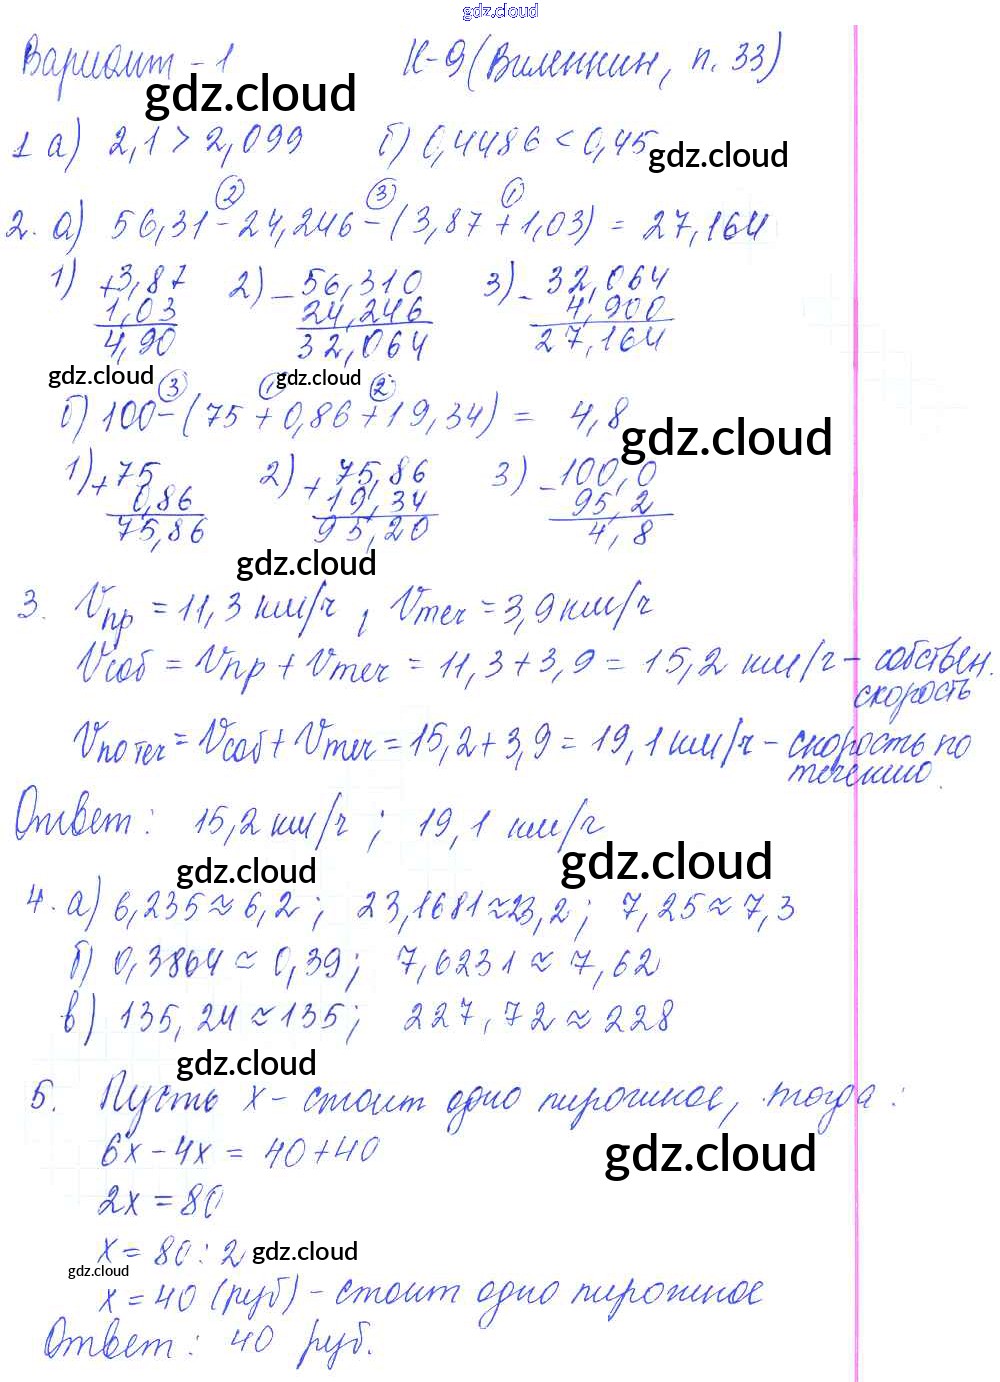 gdz.cloud
Вариант - 1 К-9 (Виленкин, п. 33)
gdz.cloud
1 а) 2,1 > 2,099 б) 0,4486 < 0,45
gdz.cloud
② ③ ①
2. а) 56,31 - 24,246 - (3,87 + 1,03) = 27,164
1) +3,87 2) -56,310 3) -32,064
1,03 24,246 4,900
4,90 32,064 27,164
gdz.cloud gdz.cloud
③ ① ②
б) 100 - (75 + 0,86 + 19,34) = 4,8
gdz.cloud
1) +75 2) +75,86 3) -100,0
0,86 19,34 95,2
75,86 95,20 4,8
gdz.cloud
3. Vпр = 11,3 км/ч, Vтеч = 3,9 км/ч
Vсоб = Vпр + Vтеч = 11,3 + 3,9 = 15,2 км/ч - собствен.
скорость
Vпо теч = Vсоб + Vтеч = 15,2 + 3,9 = 19,1 км/ч - скорость по
течению.
Ответ: 15,2 км/ч; 19,1 км/ч
gdz.cloud gdz.cloud
4. а) 6,235 ≈ 6,2; 23,1681 ≈ 23,2; 7,25 ≈ 7,3
б) 0,3864 ≈ 0,39; 7,6231 ≈ 7,62
в) 135,24 ≈ 135; 227,72 ≈ 228
gdz.cloud
5. Пусть х - стоит одно пирожное, тогда:
6х - 4х = 40 + 40
gdz.cloud
2х = 80
х = 80 : 2
gdz.cloud
gdz.cloud
х = 40 (руб) - стоит одно пирожное
Ответ: 40 руб.